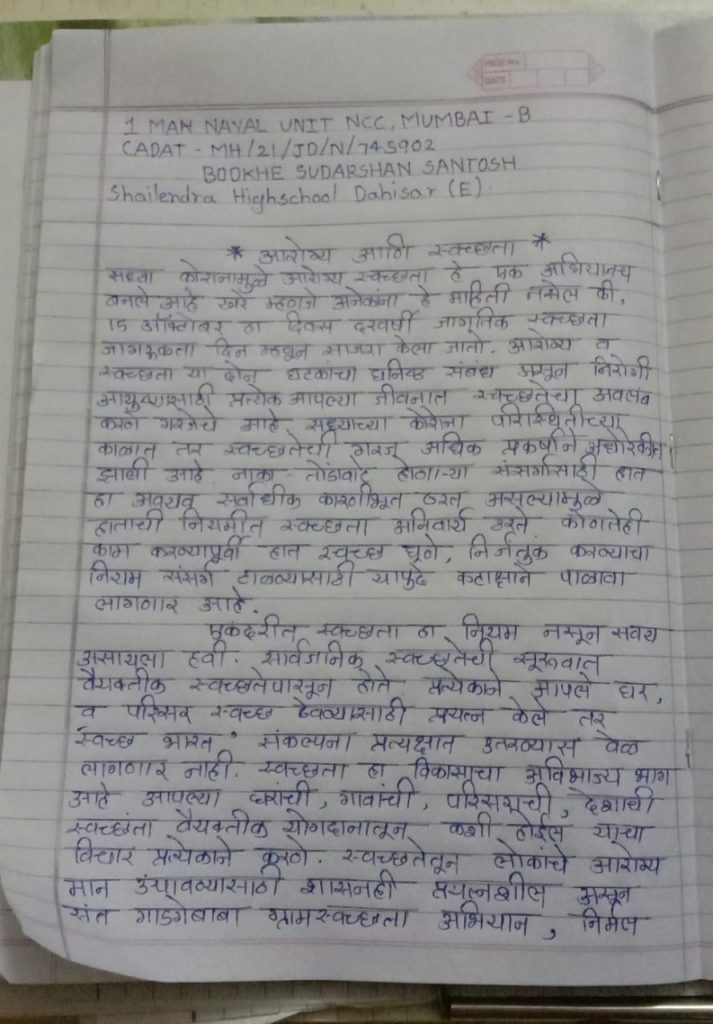 PAGE No.
DATE
1 MAH NAVAL UNIT NCC, MUMBAI - B
CADAT - MH/21/JD/N/745902
BOOKHE SUDARSHAN SANTOSH
Shailendra Highschool Dahisar (E).
* आरोग्य आणि स्वच्छता *
सध्या कोरोनामुळे आरोग्य स्वच्छता हे एक अभियानच
बनले आहे खरे म्हणजे अनेकांना हे माहिती नसेल की,
15 ऑक्टोबर हा दिवस दरवर्षी जागृतिक स्वच्छता
जागरूकता दिन म्हणून साजरा केला जातो. आरोग्य व
स्वच्छता या दोन घटकांचा घनिष्ठ संबंध असून निरोगी
आयुष्यासाठी प्रत्येक आपल्या जीवनात स्वच्छतेचा अवलंब
करणे गरजेचे आहे. सध्याच्या कोरोना परिस्थितीच्या
काळात तर स्वच्छतेची गरज अधिक प्रकर्षाने अधोरेकीत
झाली आहे. नाका - तोंडावाटे होणा-या संसर्गासाठी हात
हा अवयव सर्वाधीक कारणीभूत ठरत असल्यामुळे
हाताची नियमीत स्वच्छता अनिवार्य ठरते कोणतेही
काम करण्यापूर्वी हात स्वच्छ धूणे, निर्जतुक करण्याचा
नियम संसर्ग टाळण्यासाठी यापुढे कटाक्षाने पाळावा
लागणार आहे.
एकंदरीत स्वच्छता हा नियम नसून सवय
असायला हवी. सार्वजनिक स्वच्छतेची सूरूवात
वैयक्तीक स्वच्छतेपासून होते प्रत्येकाने आपले घर,
व परिसर स्वच्छ ठेवण्यासाठी प्रयत्न केले तर
स्वच्छ भारत' संकल्पना प्रत्यक्षात उतरण्यास वेळ
लागणार नाही. स्वच्छता हा विकासाचा अविभाज्य भाग
आहे आपल्या घरांची, गावांची, परिसराची, देशाची
स्वच्छंता वैयक्तीक योगदानातून कशी होईल याचा
विचार प्रत्येकाने करणे. स्वच्छतेतून लोकांचे आरोग्य
मान उंचावण्यासाठी शासनही प्रयत्नशील असून
संत गाडगेबाबा ग्रामस्वच्छता अभियान, निर्मल